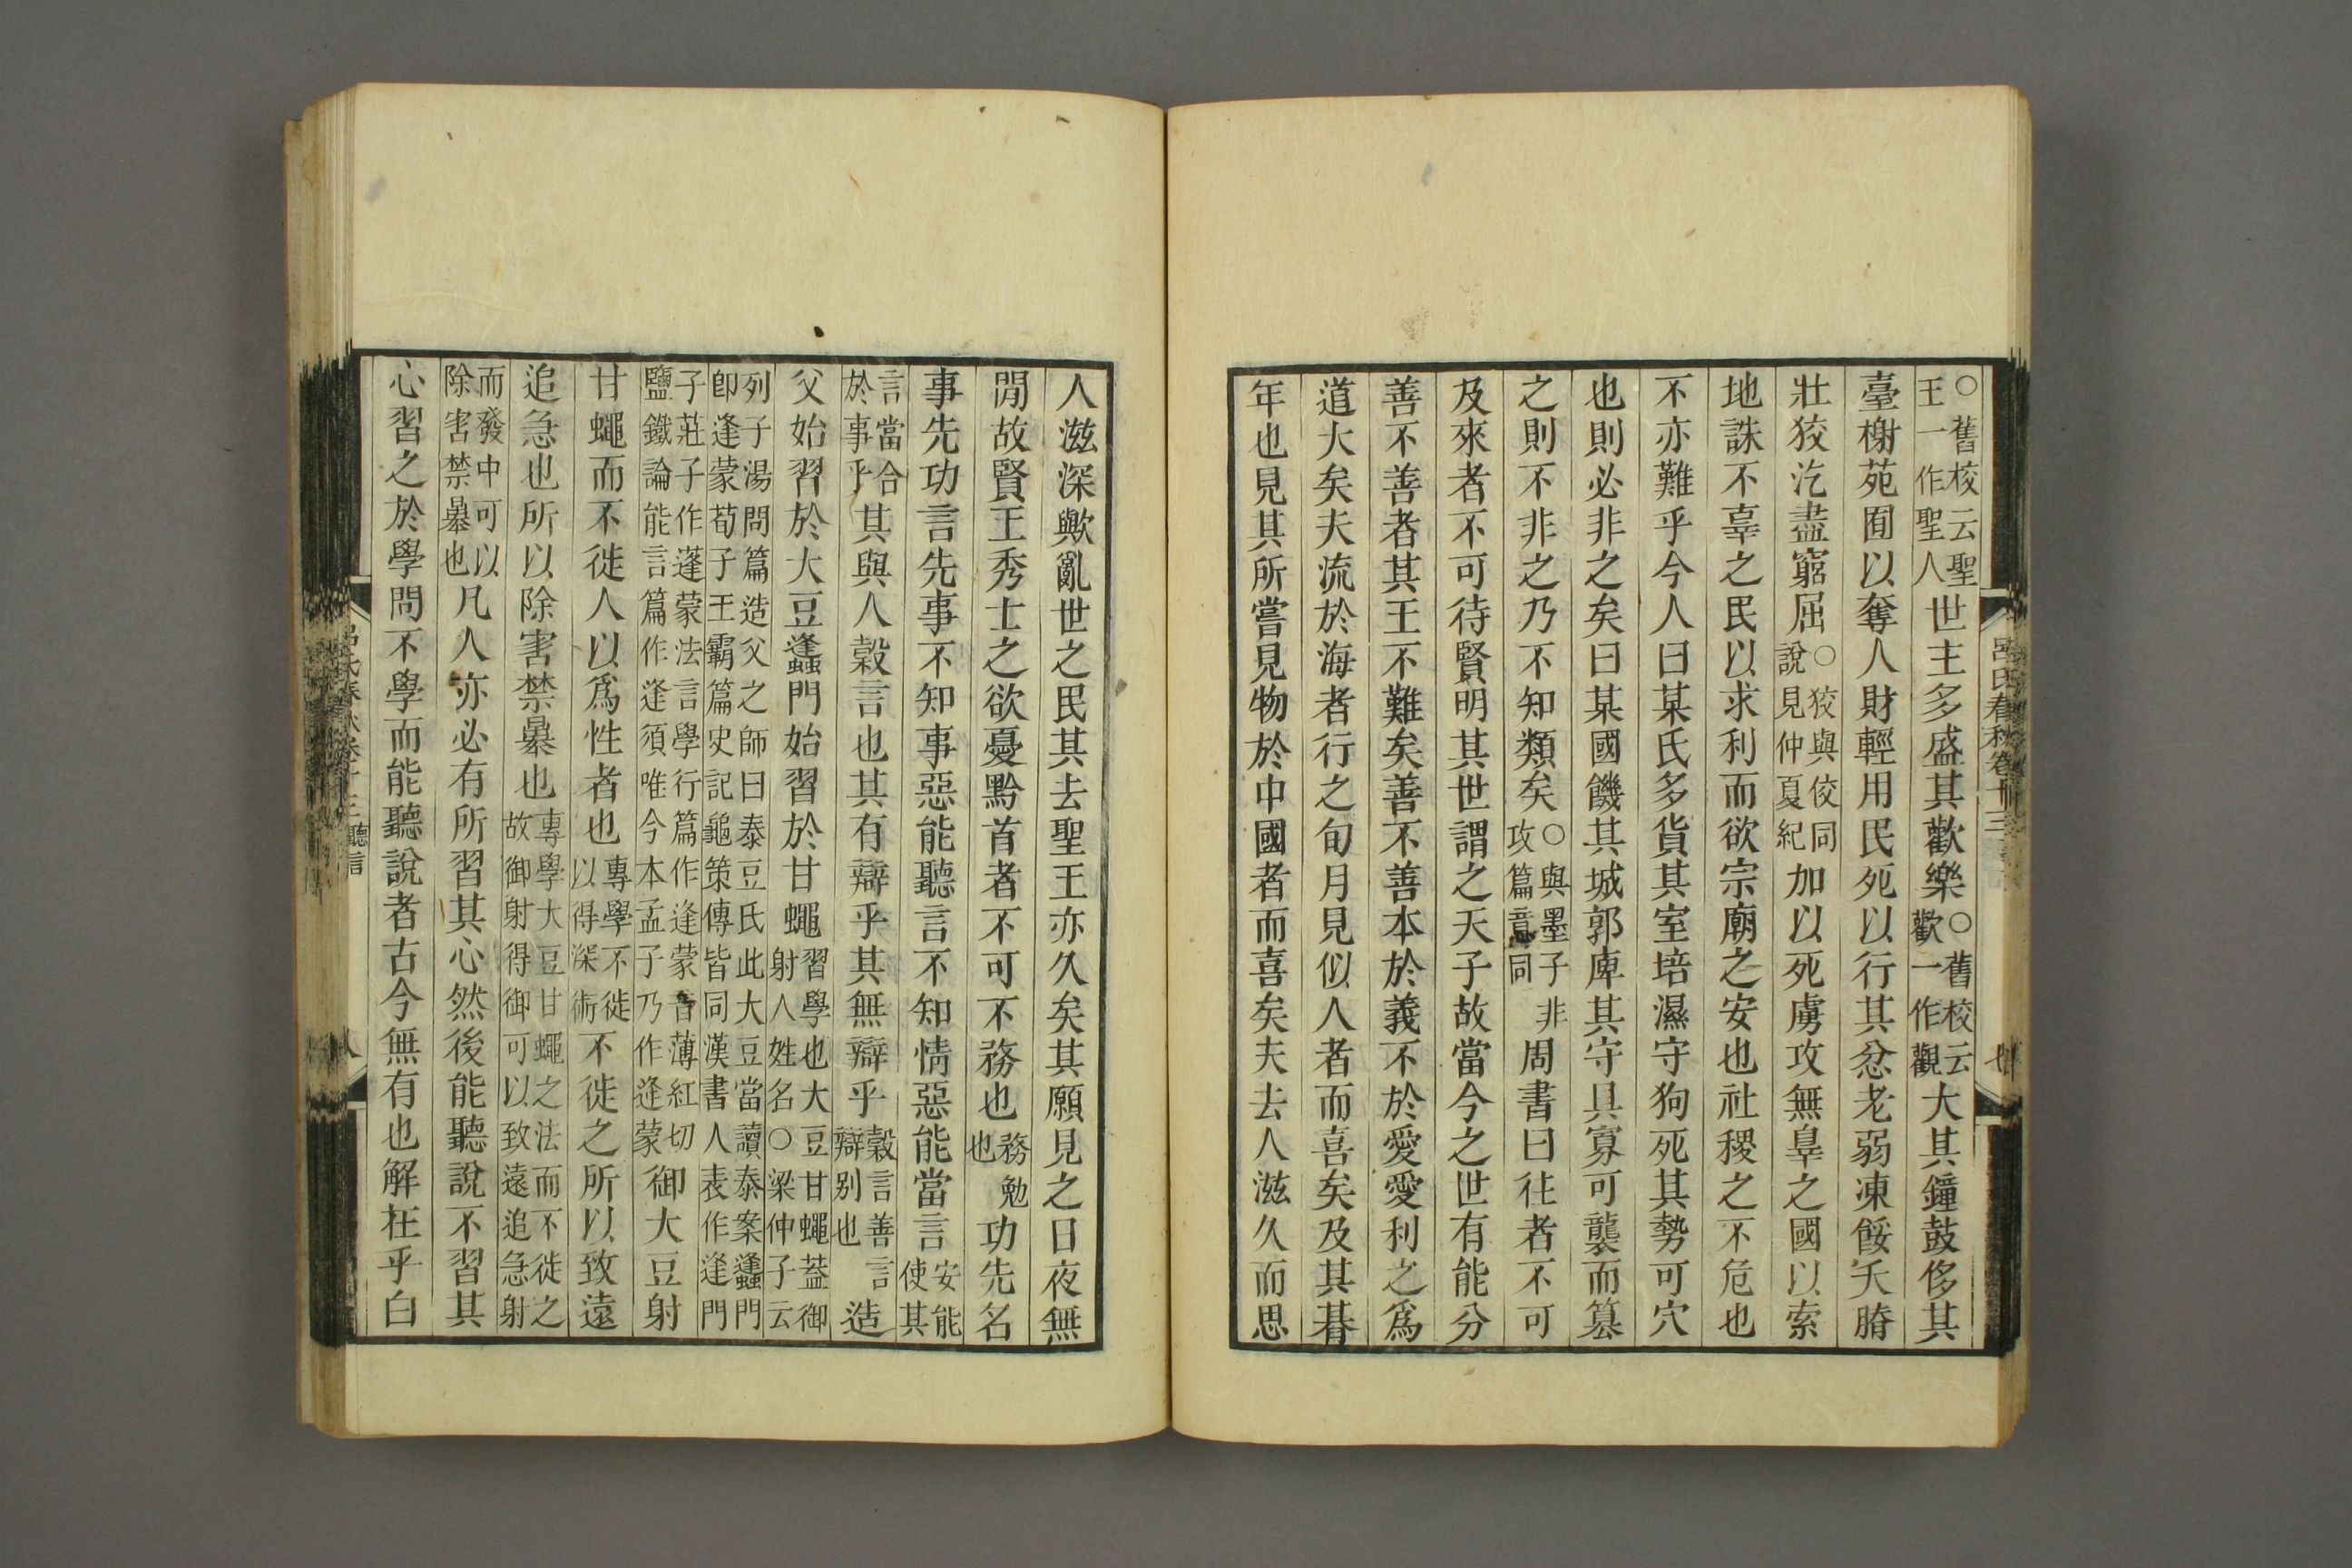 ○舊校云聖王一作聖人世主多盛其歡樂○舊校云歡一作觀大其鐘鼓侈其
臺榭苑囿以奪人財輕用民死以行其忿老弱凍餒夭膌
壯狡汔盡窮屈○狡與佼同說見仲夏紀加以死虜攻無辠之國以索
地誅不辜之民以求利而欲宗廟之安也社稷之不危也
不亦難乎今人曰某氏多貨其室培濕守狗死其勢可穴
也則必非之矣曰某國饑其城郭庳其守具寡可襲而篡
之則不非之乃不知類矣○與墨子非攻篇意同周書曰往者不可
及來者不可待賢明其世謂之天子故當今之世有能分
善不善者其王不難矣善不善本於義不於愛愛利之爲
道大矣夫流於海者行之旬月見似人者而喜矣及其朞
年也見其所嘗見物於中國者而喜矣夫去人滋久而思
人滋深歟亂世之民其去聖王亦久矣其願見之日夜無
閒故賢王秀士之欲憂黔首者不可不務也務勉也功先名
事先功言先事不知事惡能聽言不知情惡能當言安能使其
言當合於事乎其與人穀言也其有辯乎其無辯乎穀言善言辯別也造
父始習於大豆蠭門始習於甘蠅習學也大豆甘蠅葢御射人姓名○梁仲子云
列子湯問篇造父之師曰泰豆氏此大豆當讀泰案蠭門卽逢蒙荀子王霸篇史記龜策傳皆同漢書人表作逢門
子莊子作蓬蒙法言學行篇作逄蒙音薄紅切鹽鐵論能言篇作逢須唯今本孟子乃作逄蒙御大豆射
甘蠅而不徙人以爲性者也專學不徙以得深術不徙之所以致遠
追急也所以除害禁暴也專學大豆甘蠅之法而不徙之故御射得御可以致遠追急射
而發中可以除害禁暴也凡人亦必有所習其心然後能聽說不習其
心習之於學問不學而能聽說者古今無有也解在乎白
呂氏春秋卷十三 聽言
八